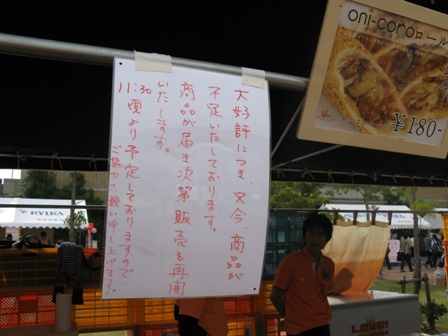 大好評につき、只今、商品が
不足いたしております。
商品が届き次第販売を再開
いたします。
11:30頃より予定しておりますので
ご協力お願い申し上げます。
oni-coroロール
¥180-
RYUKA
LOVE!